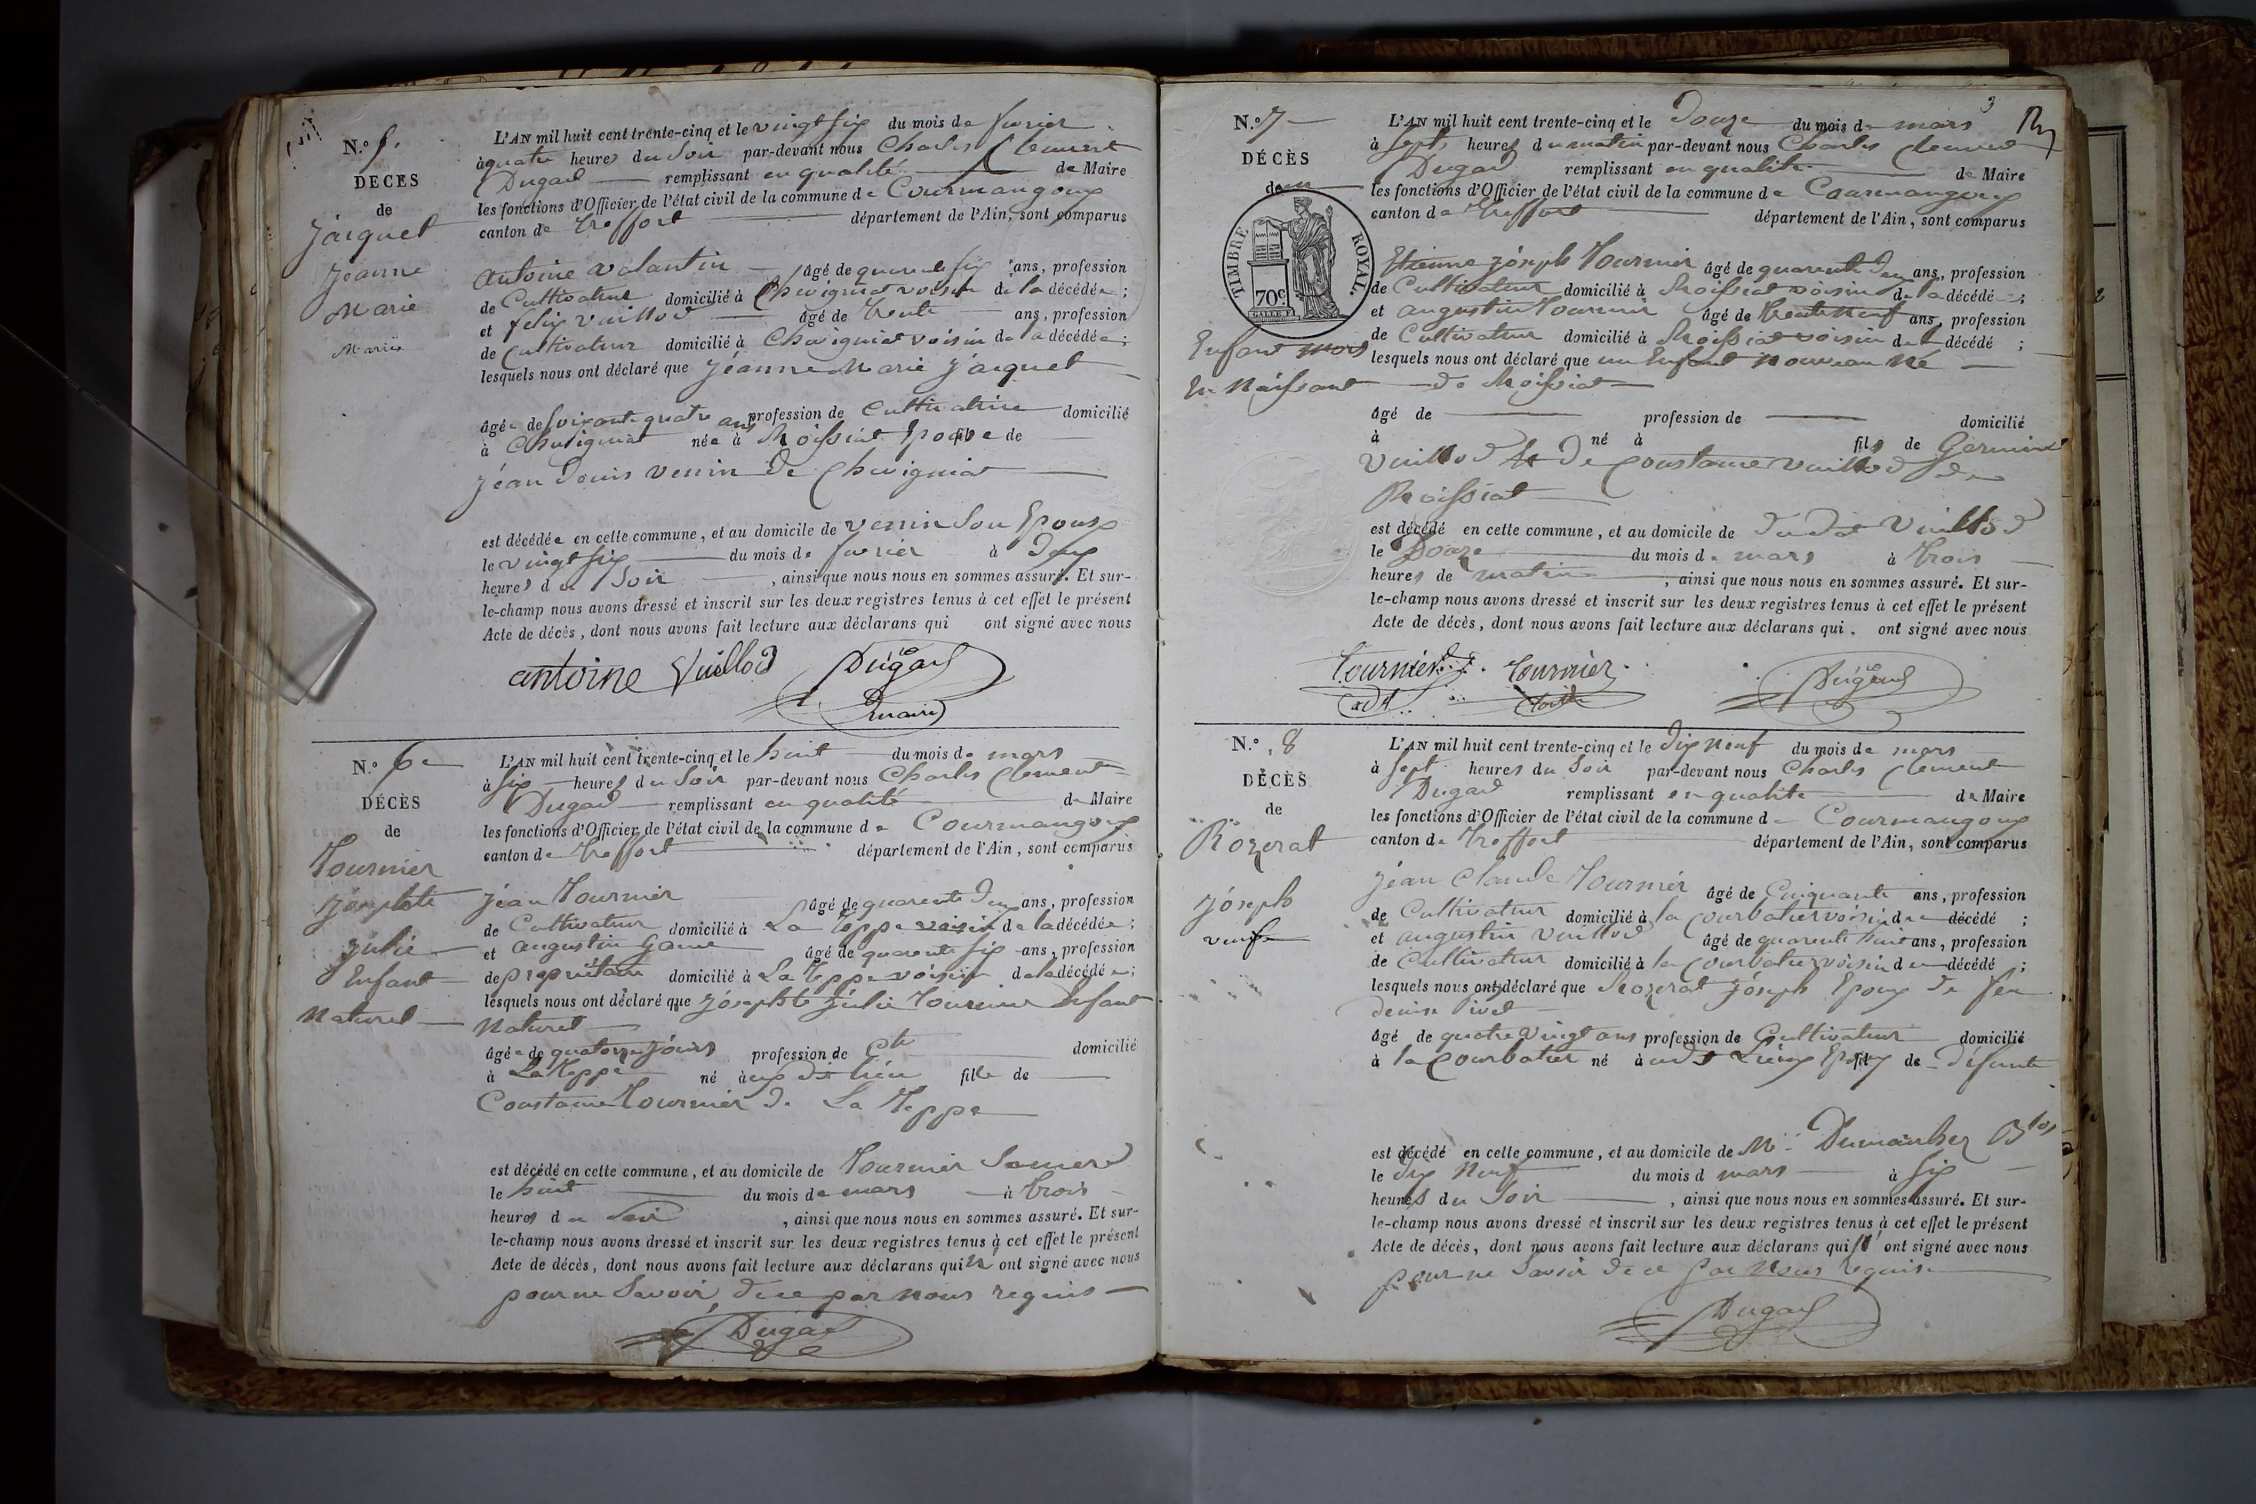 N.º 5.
DÉCÈS
de
Jaiquet
Jéanne
Marie
Mariée
L'AN mil huit cent trente-cinq et le vingt six du mois de fevrier
à quatre heures du Soir par-devant nous Charles Clement
Dugad remplissant en qualité de Maire
les fonctions d'Officier de l'état civil de la commune de Courmangoux
canton de Treffort département de l'Ain, sont comparus
antoine valantin âgé de quarente six ans, profession
de Cultivateur domicilié à Chevigniat voisin de la décédée ;
et felix vuillod âgé de trente ans, profession
de Cultivateur domicilié à Chevigniat voisin de la décédée ;
lesquels nous ont déclaré que Jéanne Marie Jaiquet
âgée de Soixante quatre ans profession de Cultivatrice domicilié
à Chevigniat née à Roissiat Epouse de
Jéan Denis venin de Chevigniat
est décédée en cette commune, et au domicile de venin Son Epoux
le vingt six du mois de fevrier à Deux
heures du Soir , ainsi que nous nous en sommes assuré. Et sur-
le-champ nous avons dressé et inscrit sur les deux registres tenus à cet effet le présent
Acte de décès, dont nous avons fait lecture aux déclarans qui ont signé avec nous
antoine Vuillod Dugad
maire
N.º 6e
DÉCÈS
de
Tournier
Joséphte
Julie
Enfant
Naturel
L'AN mil huit cent trente-cinq et le huit du mois de mars
à Six heures du Soir par-devant nous Charles Clement
Dugad remplissant en qualité de Maire
les fonctions d'Officier de l'état civil de la commune de Courmangoux
canton de Treffort département de l'Ain, sont comparus
Jéan Tournier âgé de quarente Deux ans, profession
de Cultivateur domicilié à La Teppe voisin de la décédée ;
et augustin Game âgé de quarente six ans, profession
de propriétaire domicilié à La Teppe voisin de la décédée ;
lesquels nous ont déclaré que Joséphte Julie Tournier Enfant
Naturel
âgée de quatorze jours profession de domicilié
à La Teppe né àux dt lieu fille de
Constance Tournier de La Teppe
est décédé en cette commune, et au domicile de Tournier Sa mere
le huit du mois de mars à trois
heures du Soir , ainsi que nous nous en sommes assuré. Et sur-
le-champ nous avons dressé et inscrit sur les deux registres tenus à cet effet le présent
Acte de décès, dont nous avons fait lecture aux déclarans qui n'ont signé avec nous
pour ne Savoir de ce par nous requis
Dugad
3
N.º 7
DÉCÈS
de un
TIMBRE ROYAL.
70c.
Enfant mort
En Naissant
L'AN mil huit cent trente-cinq et le Douze du mois de mars
à Sept heures du matin par-devant nous Charles Clement
Dugad remplissant en qualité de Maire
les fonctions d'Officier de l'état civil de la commune de Courmangoux
canton de Treffort département de l'Ain, sont comparus
Etienne Joséph Tournier âgé de quarente Deux ans, profession
de Cultivateur domicilié à Roissiat voisin de la décédé ;
et augustin Tournier âgé de trente neuf ans, profession
de Cultivateur domicilié à Roissiat voisin de décédé ;
lesquels nous ont déclaré que un Enfant nouveau né
de Roissiat
âgé de profession de domicilié
à né à fils de Germine
Vuillod et de Constance Vuillod de
Roissiat
est décédé en cette commune, et au domicile de du dt Vuillod
le Douze du mois de mars à trois
heures de matin , ainsi que nous nous en sommes assuré. Et sur-
le-champ nous avons dressé et inscrit sur les deux registres tenus à cet effet le présent
Acte de décès, dont nous avons fait lecture aux déclarans qui ont signé avec nous
Tournier Tournier Dugad
adt
N.º 8
DÉCÈS
de
Rozerat
Joséph
veuf
L'AN mil huit cent trente-cinq et le dix neuf du mois de mars
à Sept heures du Soir par-devant nous Charles Clement
Dugad remplissant en qualité de Maire
les fonctions d'Officier de l'état civil de la commune de Courmangoux
canton de Treffort département de l'Ain, sont comparus
Jéan Claude Tournier âgé de Cinquante ans, profession
de Cultivateur domicilié à la Courbatier voisin du décédé ;
et augustin Vuillod âgé de quarente huit ans, profession
de Cultivateur domicilié à la Courbatier voisin du décédé ;
lesquels nous ont déclaré que Rozerat Joséph Epoux de feu
denise pivet
âgé de quatre vingt ans profession de Cultivateur domicilié
à la Courbatier né à udt Lieu Epoux de défunte
est décédé en cette commune, et au domicile de Mr
le dix Neuf du mois d mars à Six
heures du Soir , ainsi que nous nous en sommes assuré. Et sur-
le-champ nous avons dressé et inscrit sur les deux registres tenus à cet effet le présent
Acte de décès, dont nous avons fait lecture aux déclarans qui n' ont signé avec nous
pour ne Savoir de ce par Nous requis
Dugad